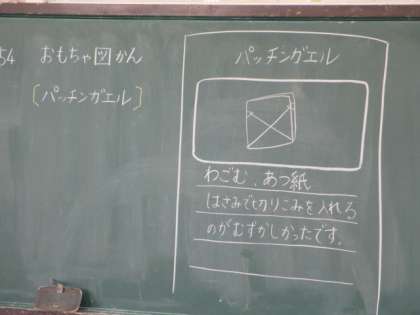 54 おもちゃ図かん
〔パッチンガエル〕
パッチンガエル
わごむ、あつ紙
はさみで切りこみを入れる
のがむずかしかったです。